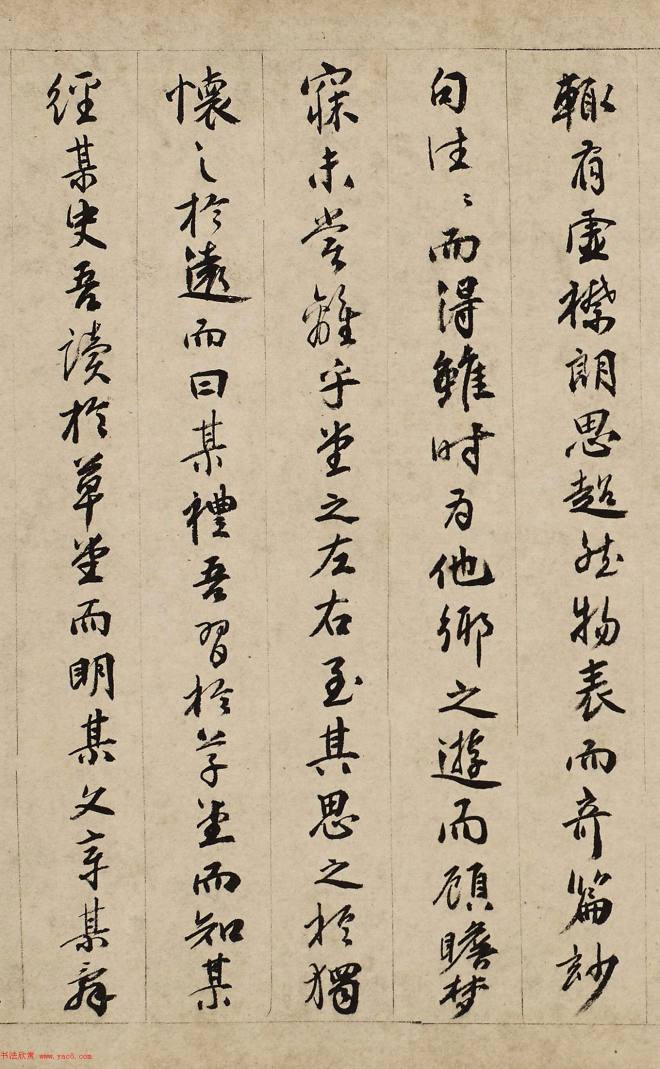 輙有虛襟朗思超然物表而奇篇妙
句往〻而得雖時为他鄉之遊而顧瞻梦
寐未嘗離乎堂之左右至其思之於獨
懷之於遠而曰某禮吾習於草堂而知某
經某史吾讀於草堂而明某文章某辞
书法欣赏 www.yac8.com